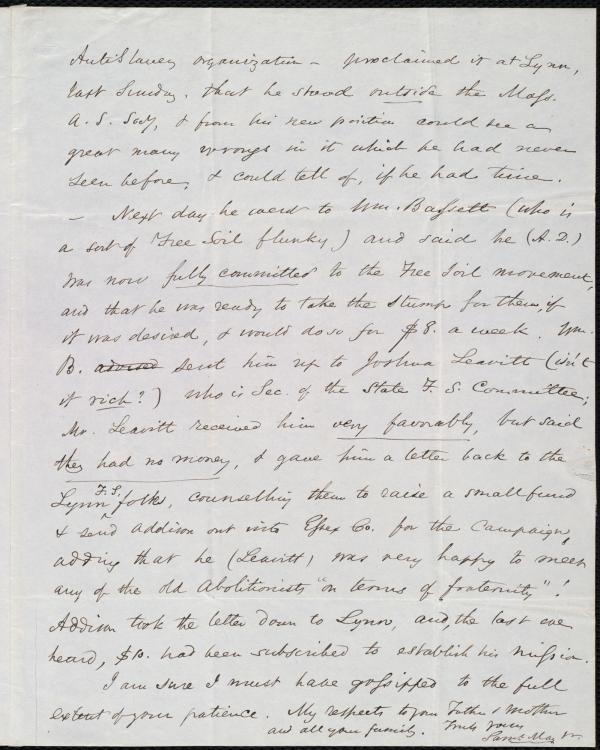 AntiSlavery organization – proclaimed it at Lynn,
last Sunday. that he stood outside the Mass.
A. S. Socy, & from his new position could see a
great many wrongs in it which he had never
seen before, & could tell of, if he had time.
– Next day he went to Wm. Bassett (who is
a sort of Free Soil flunky) and said he (A. D.)
was now fully committed to the Free Soil movement,
and that he was ready to take the stump for them, if
it was desired, & would do so for $8. a week. Wm.
B. advised sent him up to Joshua Leavitt (isn't
it rich?) who is Sec. of the State F. S. Committee;
Mr. Leavitt received him very favorably, but said
they had no money, & gave him a letter back to the
Lynn F. S. folks, counselling them to raise a small fund
& send Addison out into Essex Co. for the Campaign,
adding that he (Leavitt) was very happy to meet
any of the old Abolitionists "on terms of fraternity"!
Addison took the letter down to Lynn, and, the last we
heard, had been subscribed to establish his mission.
I am sure I must have gossipped to the full
extent of your patience. My respects to your Father & Mother
and all your family. Truly yours
Saml. May Jr.